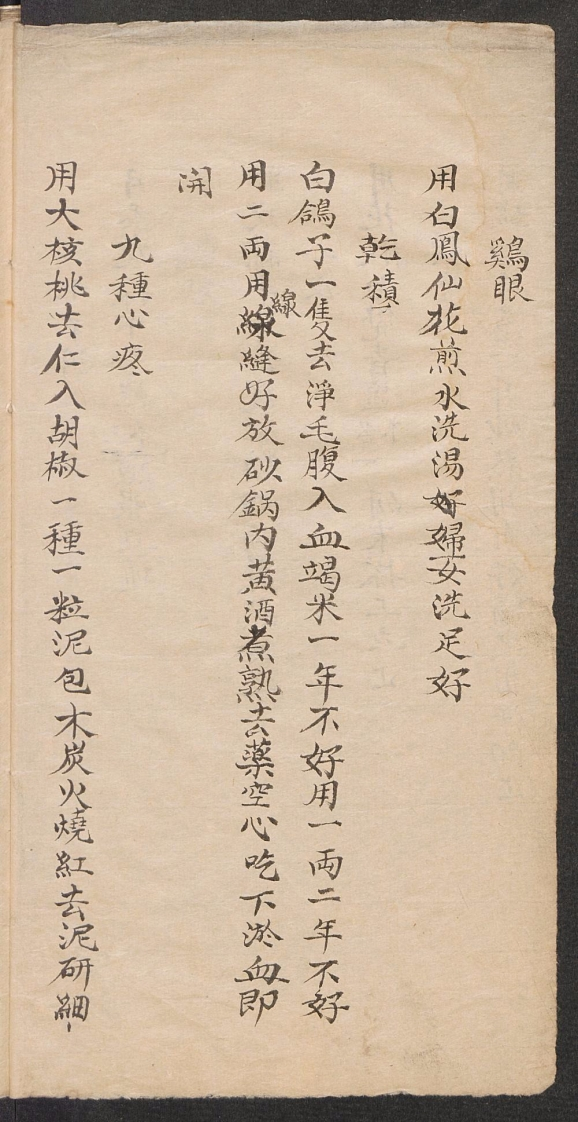 鷄眼
用白鳳仙花煎水洗湯好婦女洗足好
乾積
白鴿子一隻去淨毛腹入血竭米一年不好用一両二年不好
用二両用線縫好放砂鍋内黄酒煮熟去藥空心吃下淤血即
線
開
九種心疼
用大核桃去仁入胡椒一種一粒泥包木炭火燒紅去泥研細